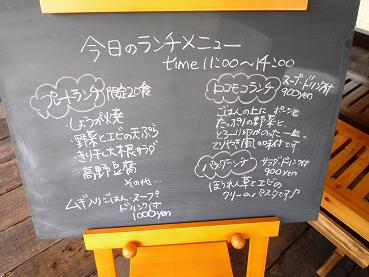 今日のランチメニュー
time 11:00〜14:00
プレートランチ 限定20食
しょうが焼
野菜とエビの天ぷら
きりぼし大根サラダ
高野豆腐
その他…
ムギ入りごはん・スープ
ドリンク付
1000yen
ロコモコランチ
スープ・ドリンク付
900yen
ごはんの上に
たっぷりの野菜と
とろーり
パスタランチ
サラダ・ドリンク付
900yen
ほうれん草とエビの
クリームパスタです♪